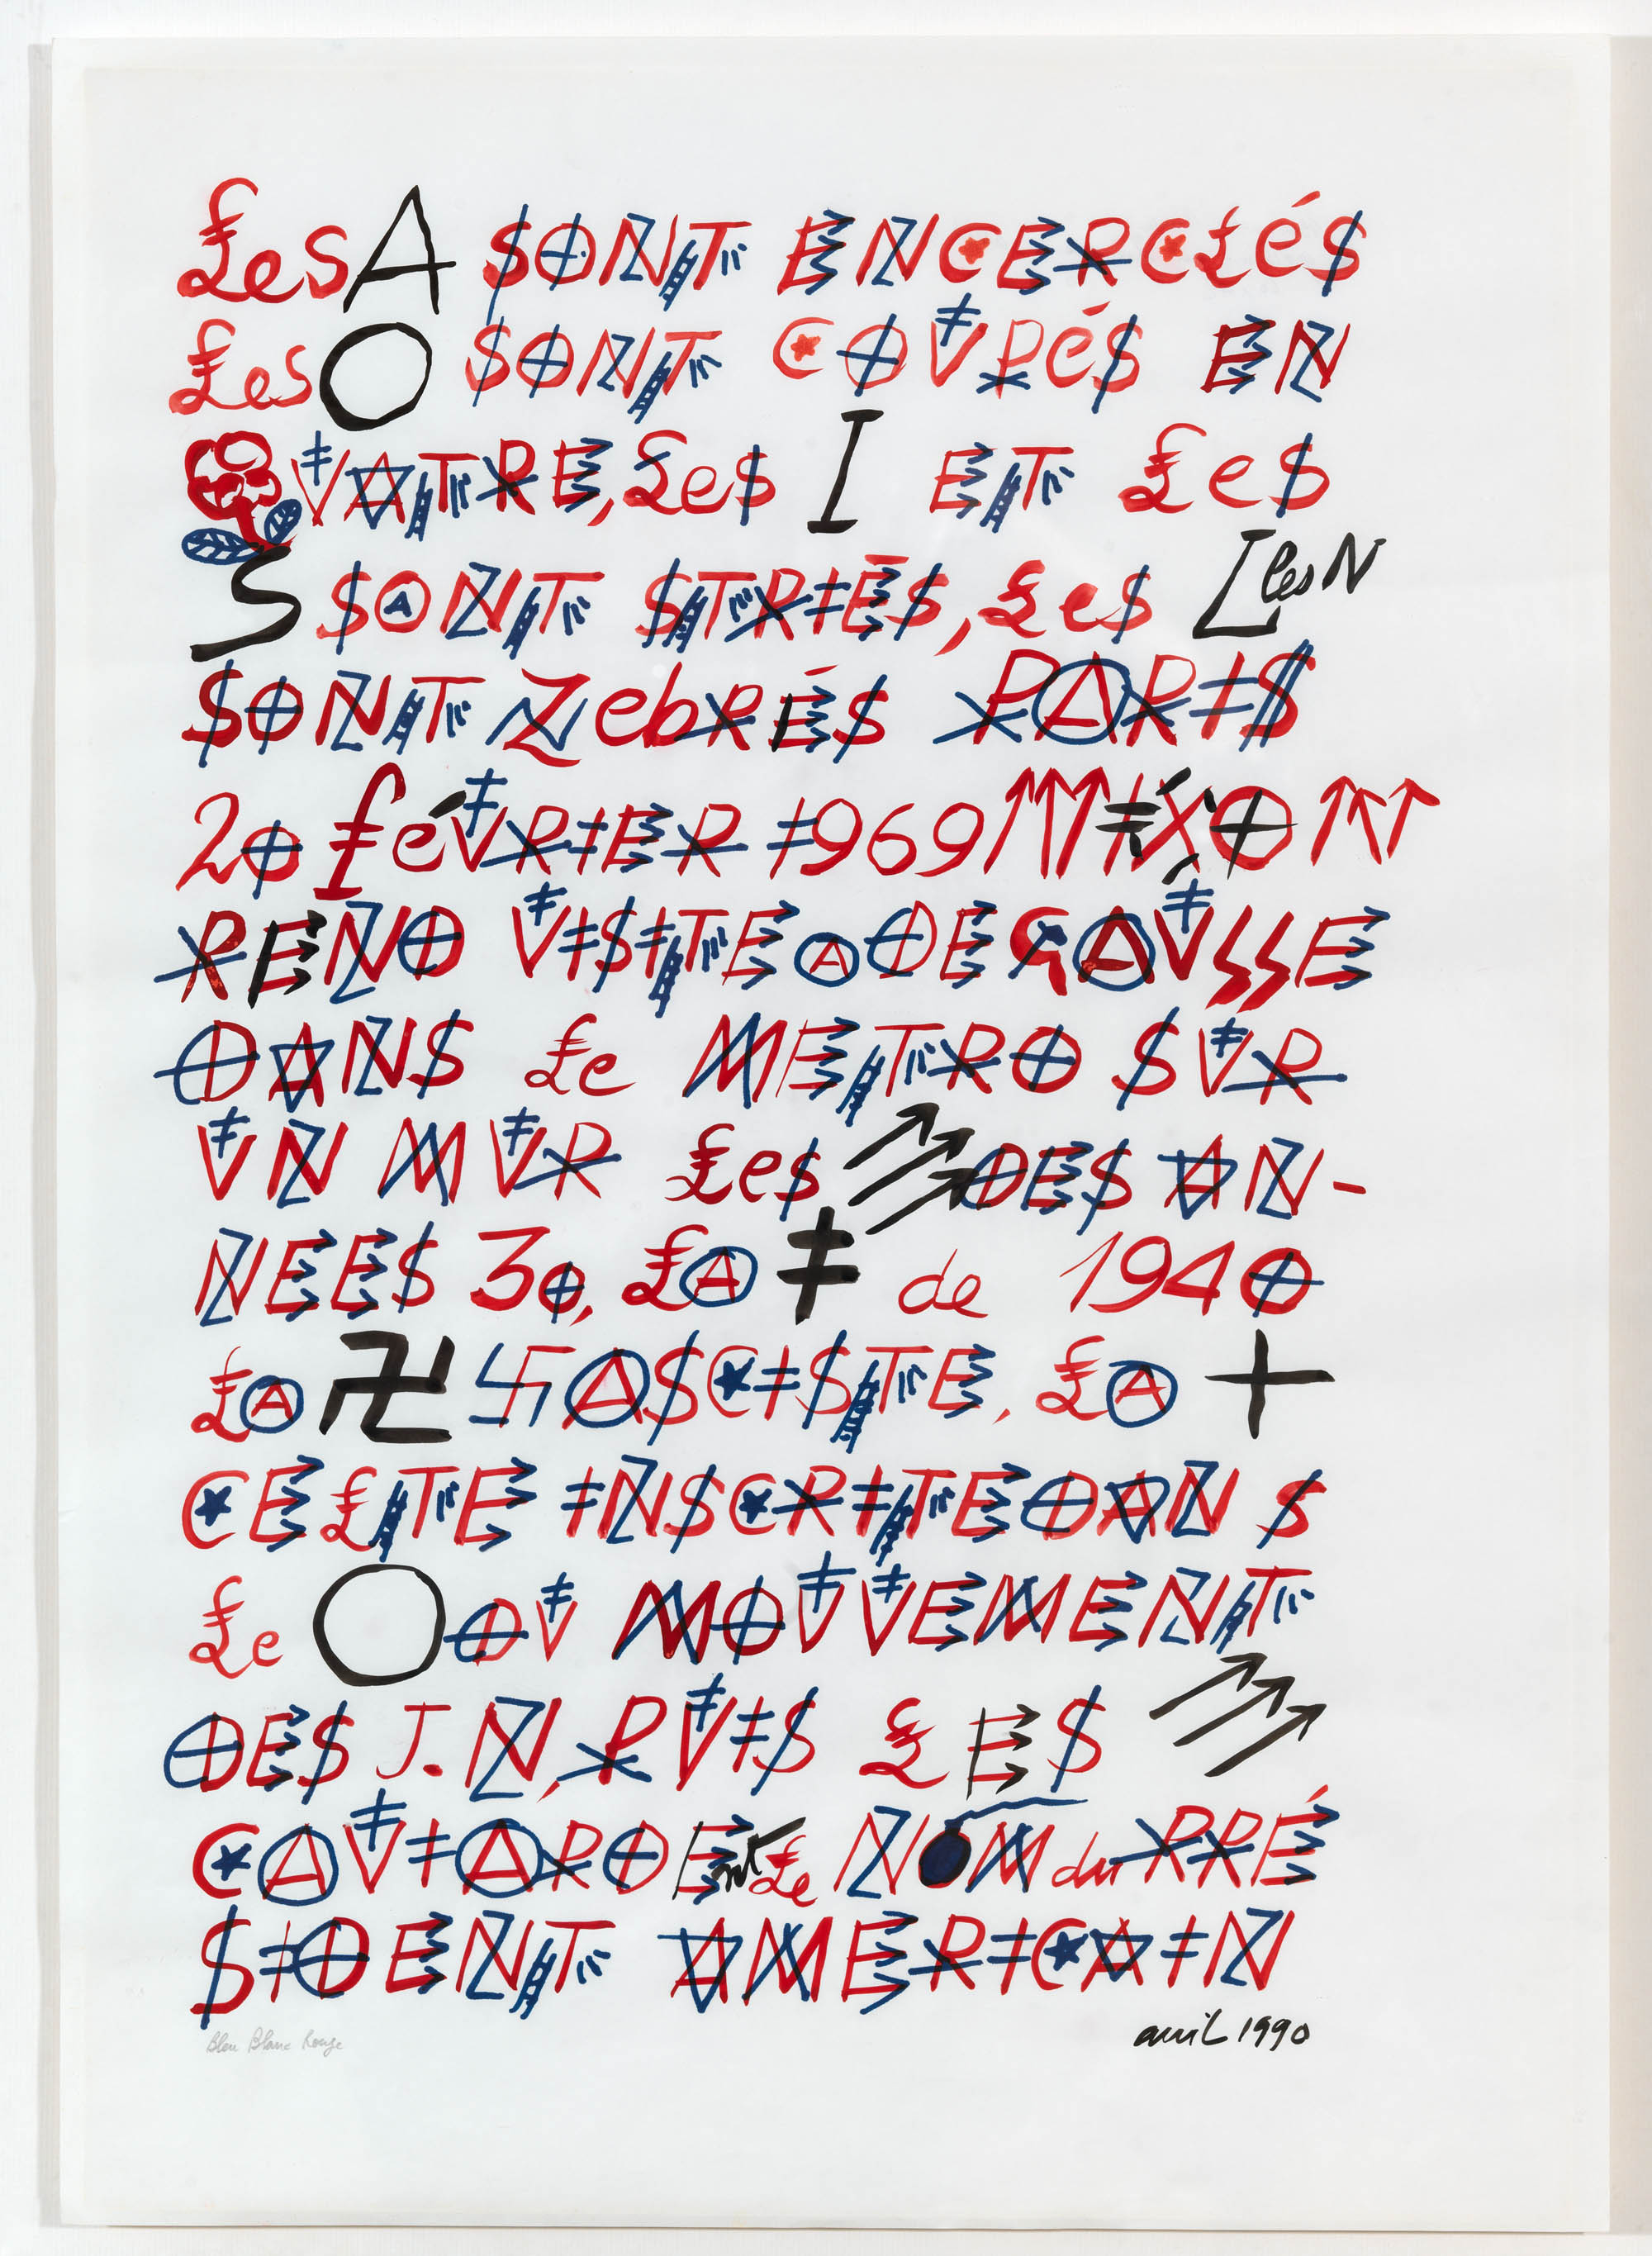 Les A SONT ENCERCLéS
Les O SONT COVPéS EN
QVATRE, Les I ET Les
S SONT STRIÉS, Les Z les N
SONT ZebRÉS PARIS
20 féVRIER 1969 NIXON
REND VISITE A DE GAVLLE
DANS Le METRO SVR
VN MVR Les ↗↗↗ DES AN-
NEES 30, LA ‡ de 1940
LA 卍 FASCISTE, LA +
CELTE INSCRITE DANS
Le O DV MOVVEMENT
DES J.N, PVIS LES ↗↗↗
CAVIARDEnt Le NOM du PRÉ
SIDENT AMERICAIN
Bleu Blanc Rouge
avril 1990